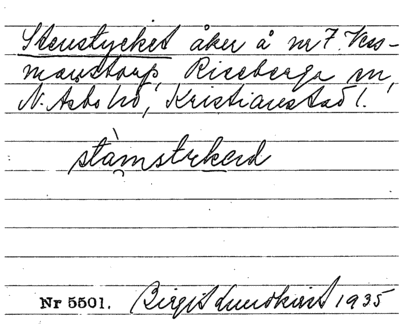 Stenstycket åker å nr 7. Vas-
manstorp, Riseberga sn,
N. Asbo hd, Kristianstad l.
stàmstrkəd
Nr 5501. Birgit Lundkvist 1935